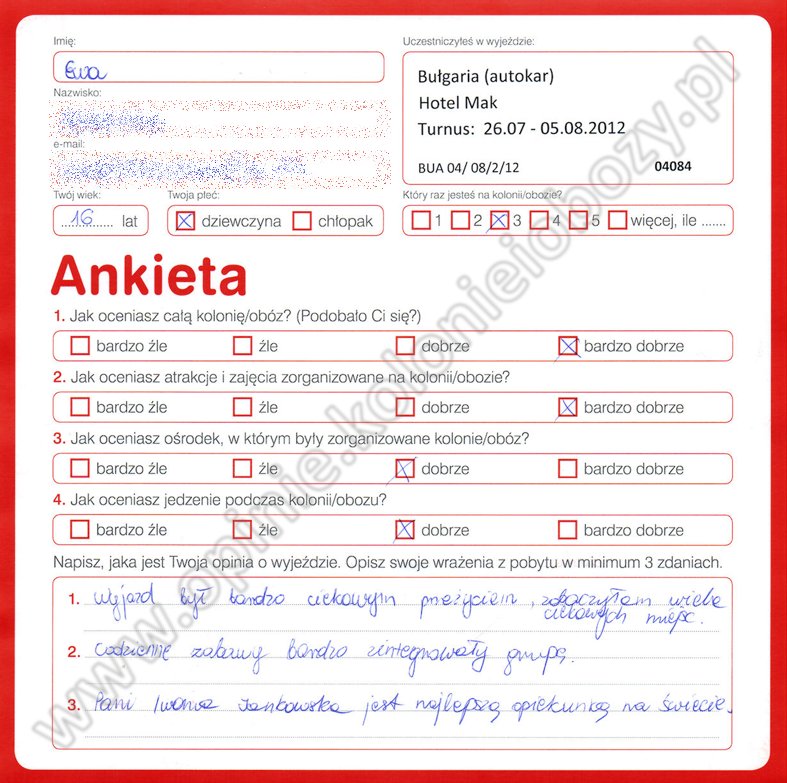 Imię:
Ewa
Nazwisko:
e-mail:
Twój wiek:
16 lat
Twoja płeć:
dziewczyna chłopak
Uczestniczyłeś w wyjeździe:
Bułgaria (autokar)
Hotel Mak
Turnus: 26.07 - 05.08.2012
BUA 04/ 08/2/12 04084
Który raz jesteś na kolonii/obozie?
1 2 3 4 5 więcej, ile .......
Ankieta
1. Jak oceniasz całą kolonię/obóz? (Podobało Ci się?)
bardzo źle źle dobrze bardzo dobrze
2. Jak oceniasz atrakcje i zajęcia zorganizowane na kolonii/obozie?
bardzo źle źle dobrze bardzo dobrze
3. Jak oceniasz ośrodek, w którym były zorganizowane kolonie/obóz?
bardzo źle źle dobrze bardzo dobrze
4. Jak oceniasz jedzenie podczas kolonii/obozu?
bardzo źle źle dobrze bardzo dobrze
Napisz, jaka jest Twoja opinia o wyjeździe. Opisz swoje wrażenia z pobytu w minimum 3 zdaniach.
1. Wyjazd był bardzo ciekawym przeżyciem, zobaczyłam wiele
ciekawych miejsc.
2. Codzienne zabawy bardzo zintegrowały grupę.
3. Pani Iwona Jankowska jest najlepszą opiekunką na świecie.
www.opinie.kolonieiobozy.pl